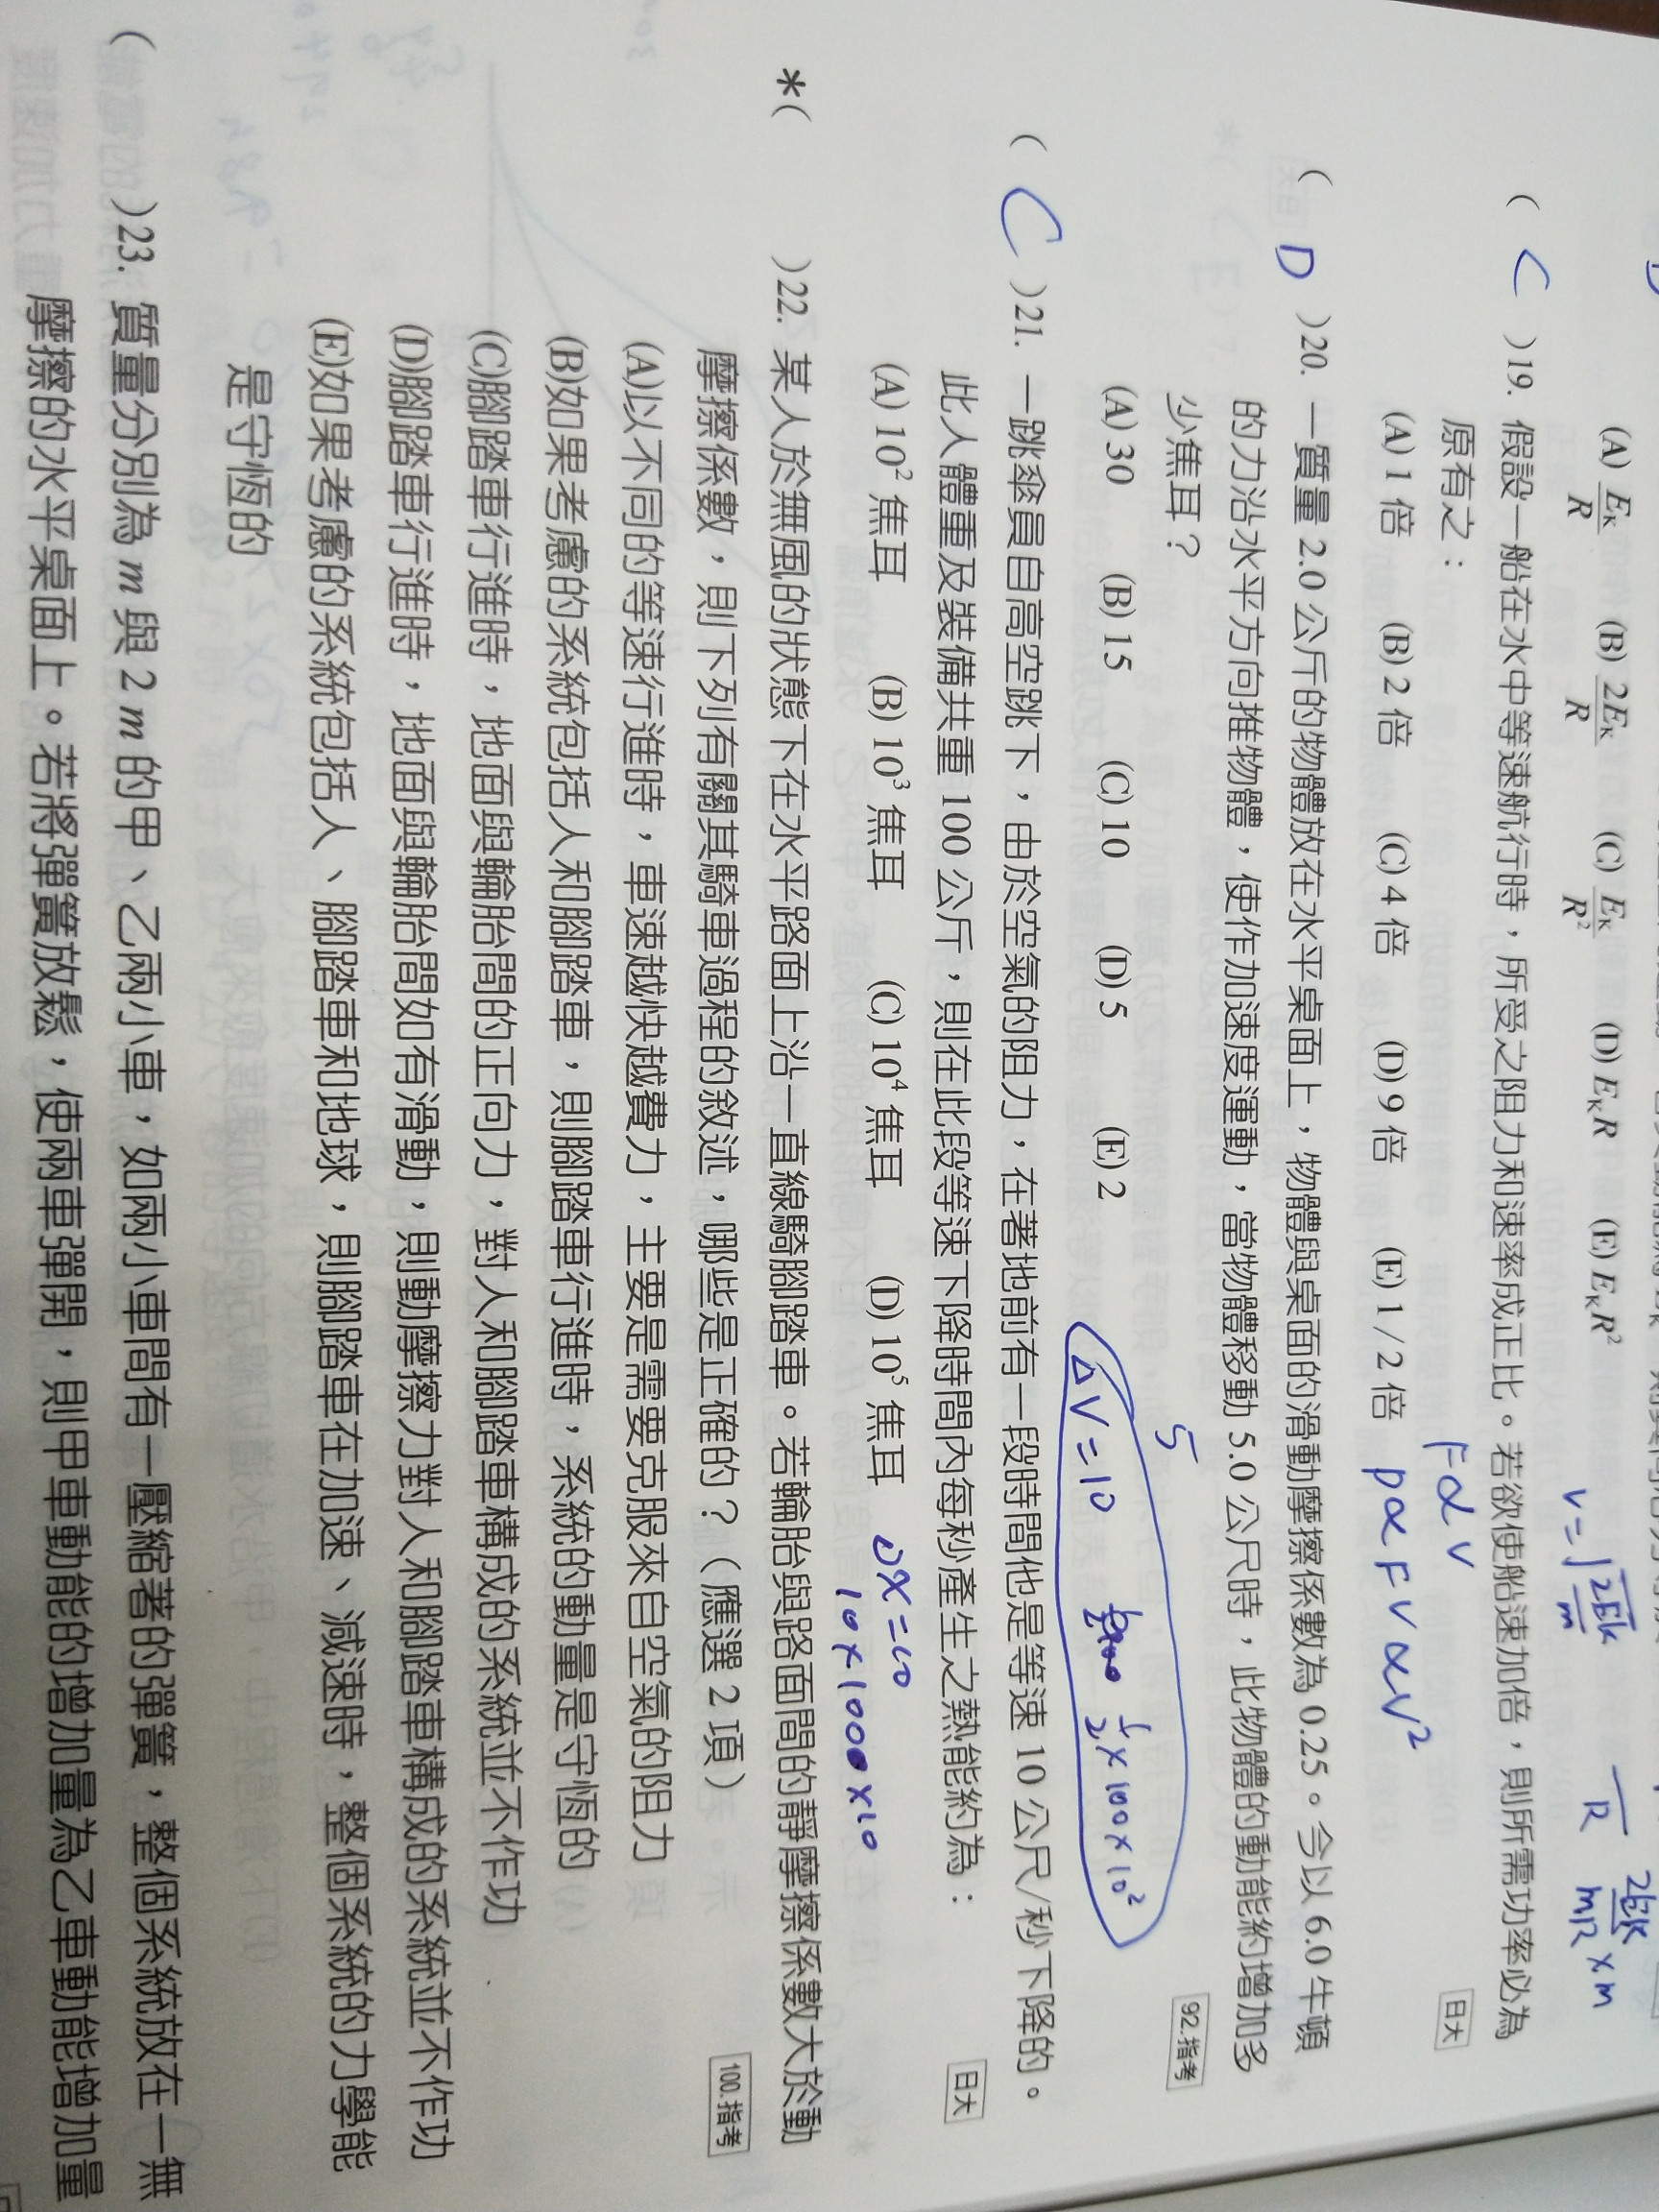 (A) E_K/R (B) 2E_K/R (C) E_K/R² (D) E_K R (E) E_K R²
v=√(2Ek/m)
R
2Ek/mR × m
( C )19. 假設一船在水中等速航行時，所受之阻力和速率成正比。若欲使船速加倍，則所需功率必為
原有之：
F α V
日大
(A) 1 倍 (B) 2 倍 (C) 4 倍 (D) 9 倍 (E) 1 / 2 倍 P α F V α V²
( D )20. 一質量 2.0 公斤的物體放在水平桌面上，物體與桌面的滑動摩擦係數為 0.25。今以 6.0 牛頓
的力沿水平方向推物體，使作加速度運動，當物體移動 5.0 公尺時，此物體的動能約增加多
少焦耳？
5
92.指考
(A) 30 (B) 15 (C) 10 (D) 5 (E) 2
ΔV=10 ½×100×10²
( C )21. 一跳傘員自高空跳下，由於空氣的阻力，在著地前有一段時間他是等速 10 公尺/秒下降的。
此人體重及裝備共重 100 公斤，則在此段等速下降時間內每秒產生之熱能約為：
日大
(A) 10² 焦耳 (B) 10³ 焦耳 (C) 10⁴ 焦耳 (D) 10⁵ 焦耳 ΔX=10
10×100×10
*( )22. 某人於無風的狀態下在水平路面上沿一直線騎腳踏車。若輪胎與路面間的靜摩擦係數大於動
摩擦係數，則下列有關其騎車過程的敘述，哪些是正確的？（應選 2 項）
100.指考
(A)以不同的等速行進時，車速越快越費力，主要是需要克服來自空氣的阻力
(B)如果考慮的系統包括人和腳踏車，則腳踏車行進時，系統的動量是守恆的
(C)腳踏車行進時，地面與輪胎間的正向力，對人和腳踏車構成的系統並不作功
(D)腳踏車行進時，地面與輪胎間如有滑動，則動摩擦力對人和腳踏車構成的系統並不作功
(E)如果考慮的系統包括人、腳踏車和地球，則腳踏車在加速、減速時，整個系統的力學能
是守恆的
( )23. 質量分別為 m 與 2 m 的甲、乙兩小車，如兩小車間有一壓縮著的彈簧，整個系統放在一無
摩擦的水平桌面上。若將彈簧放鬆，使兩車彈開，則甲車動能的增加量為乙車動能增加量